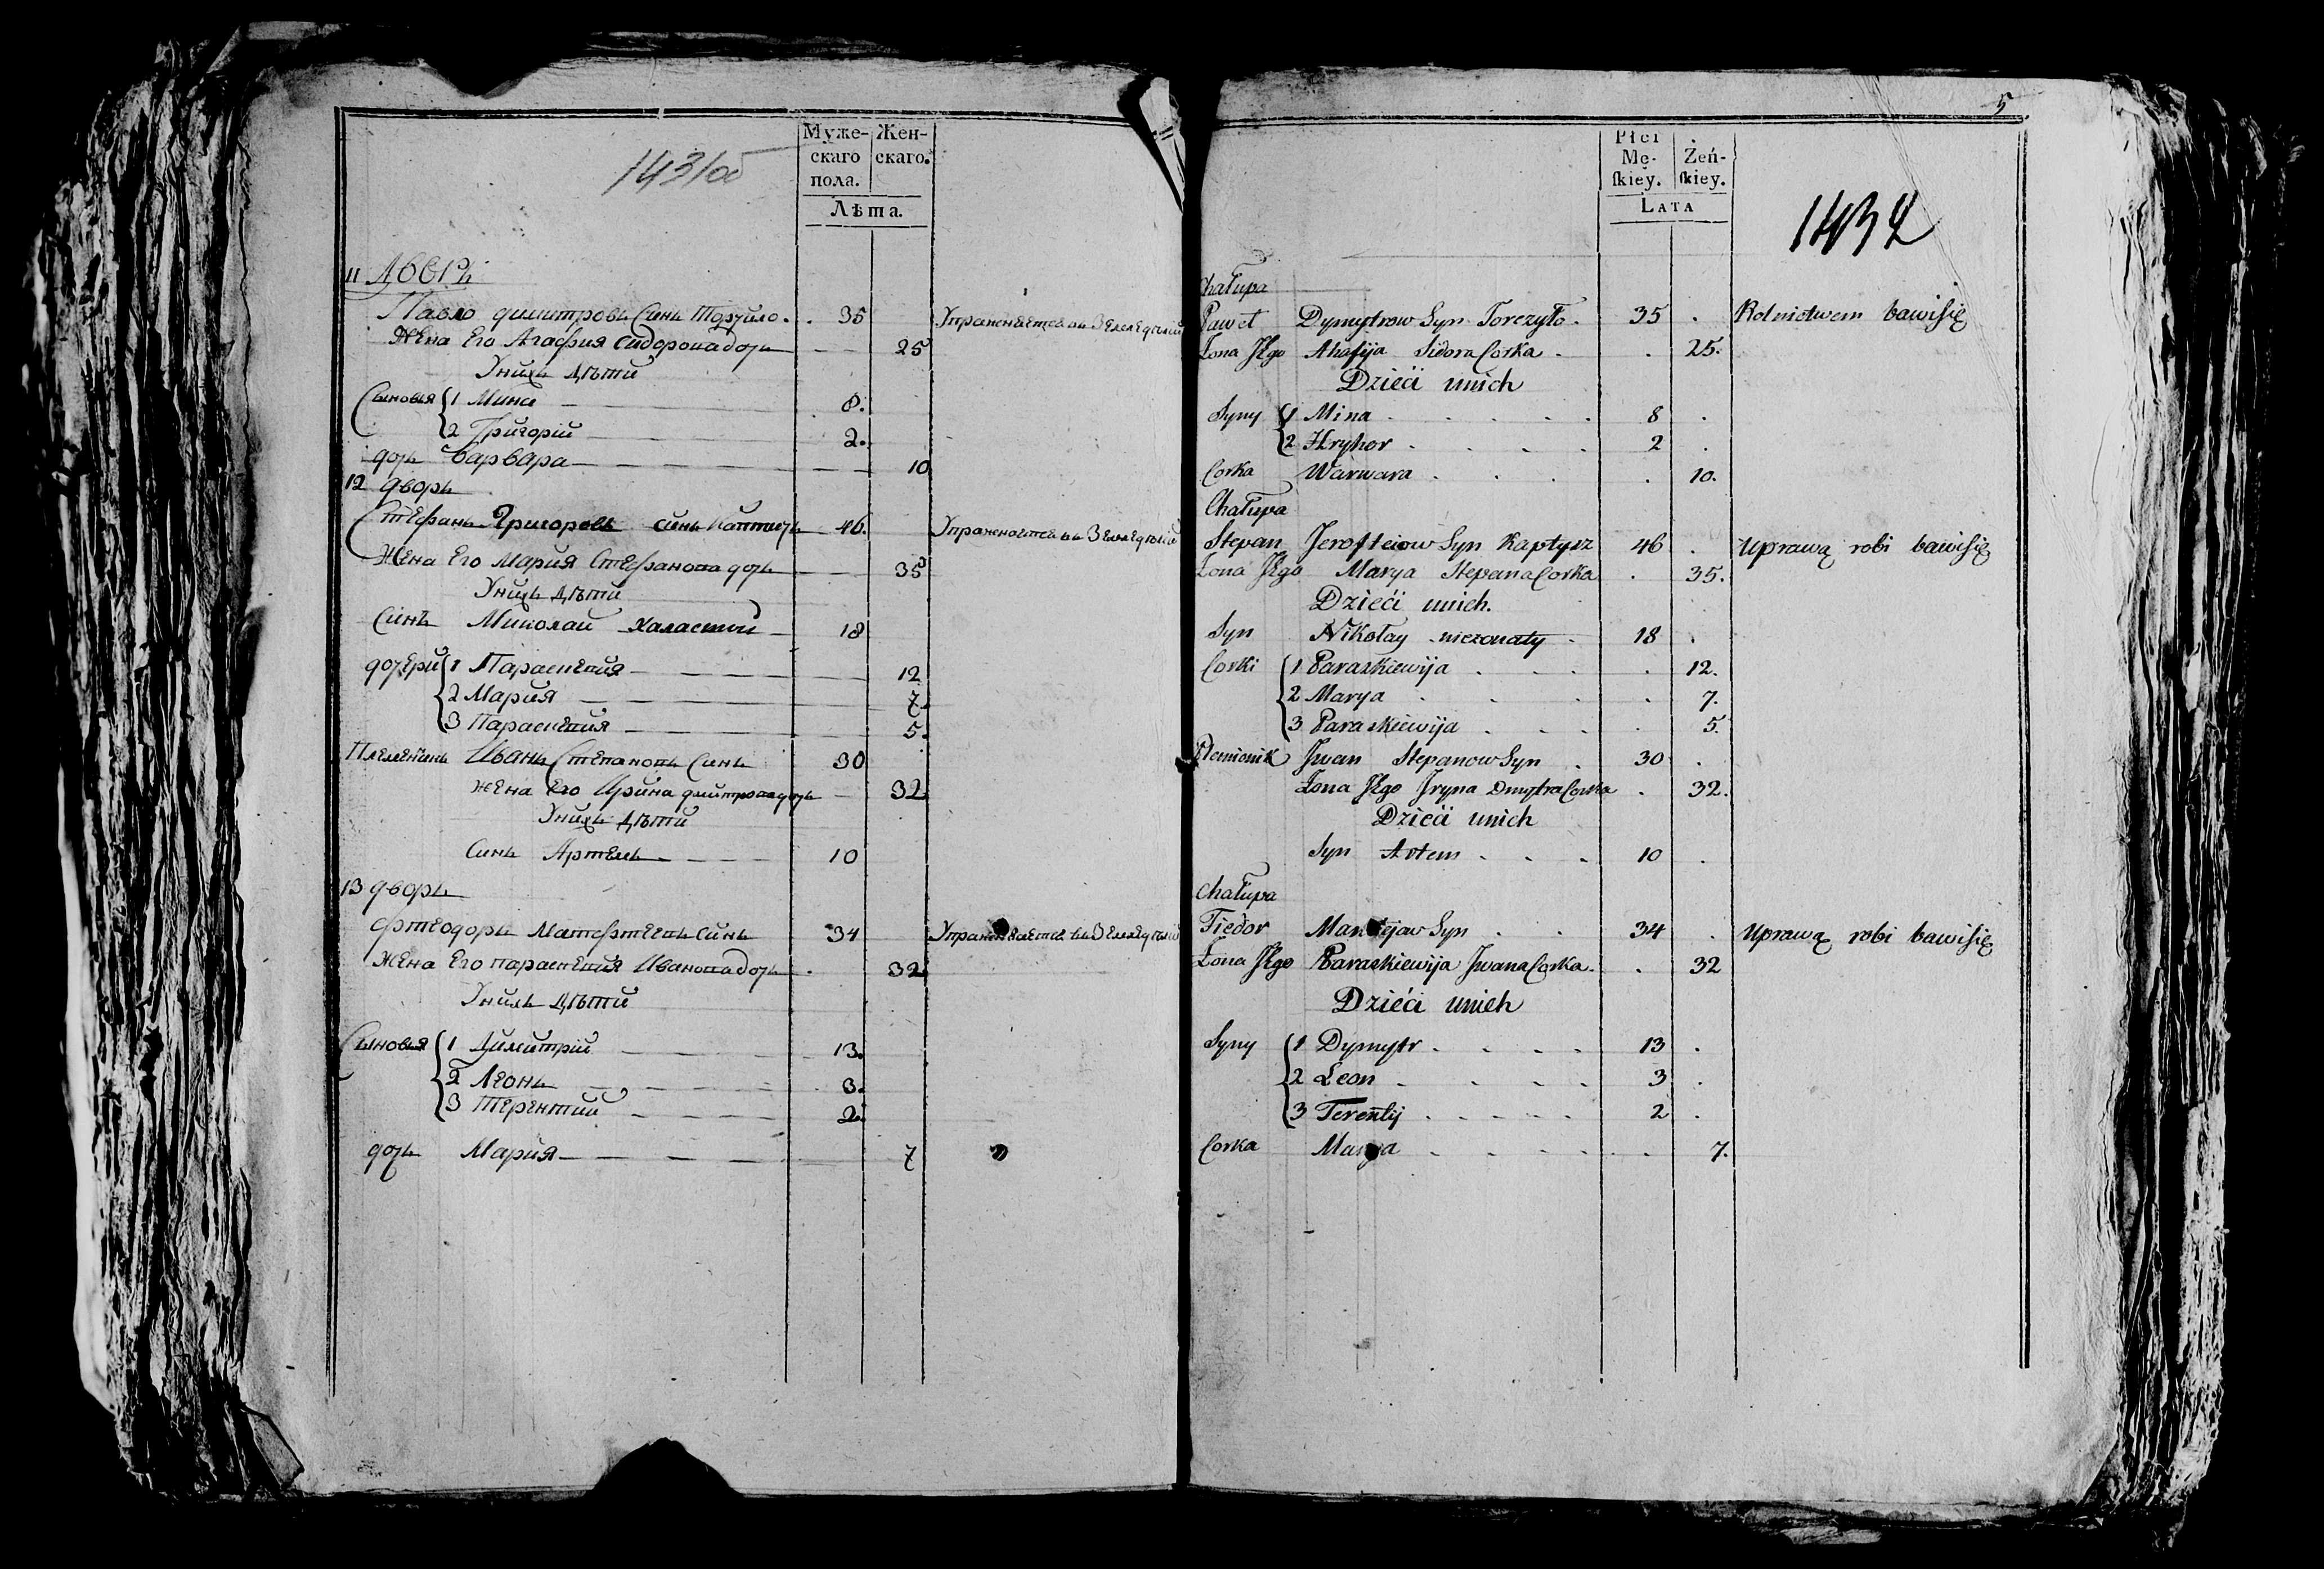 1431об
Муже- Жен-
скаго скаго.
пола.
Лѣта.
11 Дворъ
Павло Димитровъ Синъ Торчило. 35 Упражняется въ Земледѣлій
Жена Его Агафия Сидорова дочь 25
Унихъ Дѣти
Сыновья 1 Мина 8.
2 Григорій 2.
дочь Варвара 10
12 дворъ
Стефанъ Григоровъ синъ 46. Упражняется въ Земледѣлій
Жена Его Мария Стефанова дочь 35
Унихъ Дѣти
Синъ Миколай Халастий 18
дочери 1 Параскевия 12
2 Мария 7
3 Параскевия 5.
Племеникъ Иванъ Степановъ Синъ 30
жена Его Ирина дмитрова дочь 32
Унихъ Дѣти
Синъ Артемъ 10
13 дворъ
Фтеодоръ Матфтеевъ Синъ 34 Упражняется въ Земледѣлій
Жена Его параскевия Иванова дочь 32
Унихъ Дѣти
Сыновья 1 Димитрій 13.
2 Леонъ 3.
3 Терентий 2.
дочь Мария 7
5
Płci
Mę- Żeń-
skiey. skiey.
LATA
1432
Chałupa
Paweł Dymytrow Syn Torczyło. 35 . Rolnictwem bawi się
Żona Jego Ahafija Sidora Corka . . 25.
Dzieći unich
Syny 1 Mina 8 .
2 Hryhor 2 .
Corka Warwara . 10.
Chałupa
Stepan Jerofteiow Syn Kaptysz 46 . Uprawą robi bawi się
Żona Jego Marya Stepana Corka . 35.
Dzieći unich.
Syn Nikołay niezonaty . 18 .
Corki 1 Paraskiewija . 12.
2 Marya . 7.
3 Paraskiewija . 5.
Plemionik Jwan Stepanow Syn . 30 .
Żona Jego Jryna Dmytra Corka . 32.
Dzieći unich
Syn Artem 10 .
Chałupa
Fiedor Syn 34 . Uprawą robi bawi się
Żona Jego Paraskiewija Jwana Corka . 32
Dzieći unich
Syny 1 Dymytr 13 .
2 Leon 3 .
3 Terentij 2 .
Corka Marya . 7.